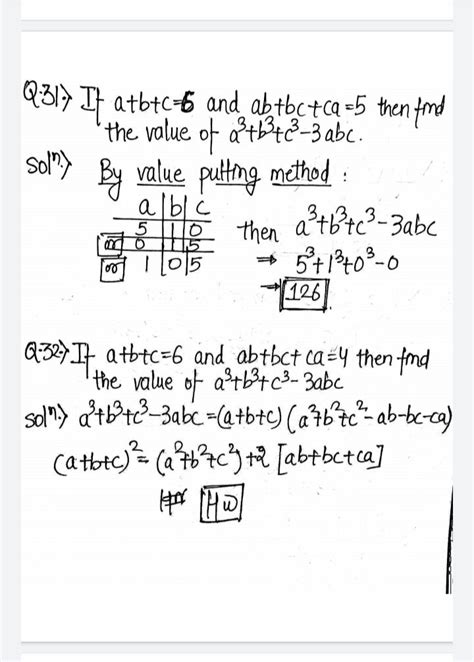 Q.31⇒ If a+b+c=6 and ab+bc+ca=5 then find
the value of a³+b³+c³-3abc.
Solⁿ.⇒ By value putting method :
a | b | c
5 | 1 | 0 then a³+b³+c³-3abc
or 0 | 1 | 5 ⇒ 5³+1³+0³-0
or 1 | 0 | 5 → 126
Q.32⇒ If a+b+c=6 and ab+bc+ca=4 then find
the value of a³+b³+c³-3abc
Solⁿ.⇒ a³+b³+c³-3abc=(a+b+c)(a²+b²+c²-ab-bc-ca)
(a+b+c)²=(a²+b²+c²)+2[ab+bc+ca]
HW